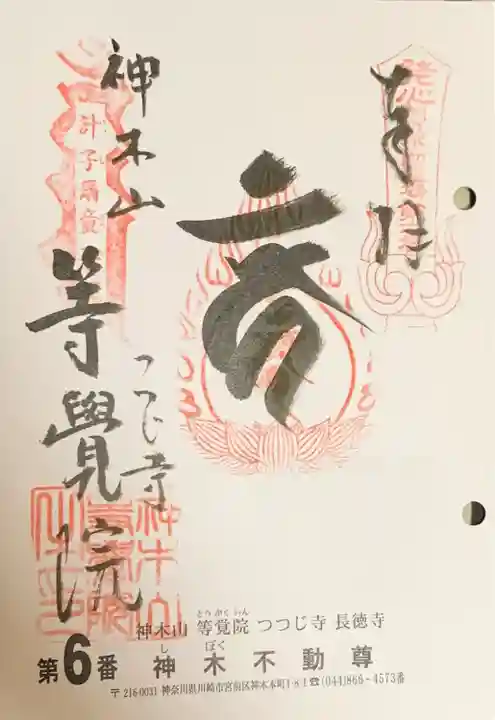 奉拝
神木山
等覺院
つつじ寺
神木山 等覚院 つつじ寺 長徳寺
とうがくいん
第6番 神木不動尊
しぼく
〒216-0031 神奈川県川崎市宮前区神木本町1-8-1☎(044)866-4573番